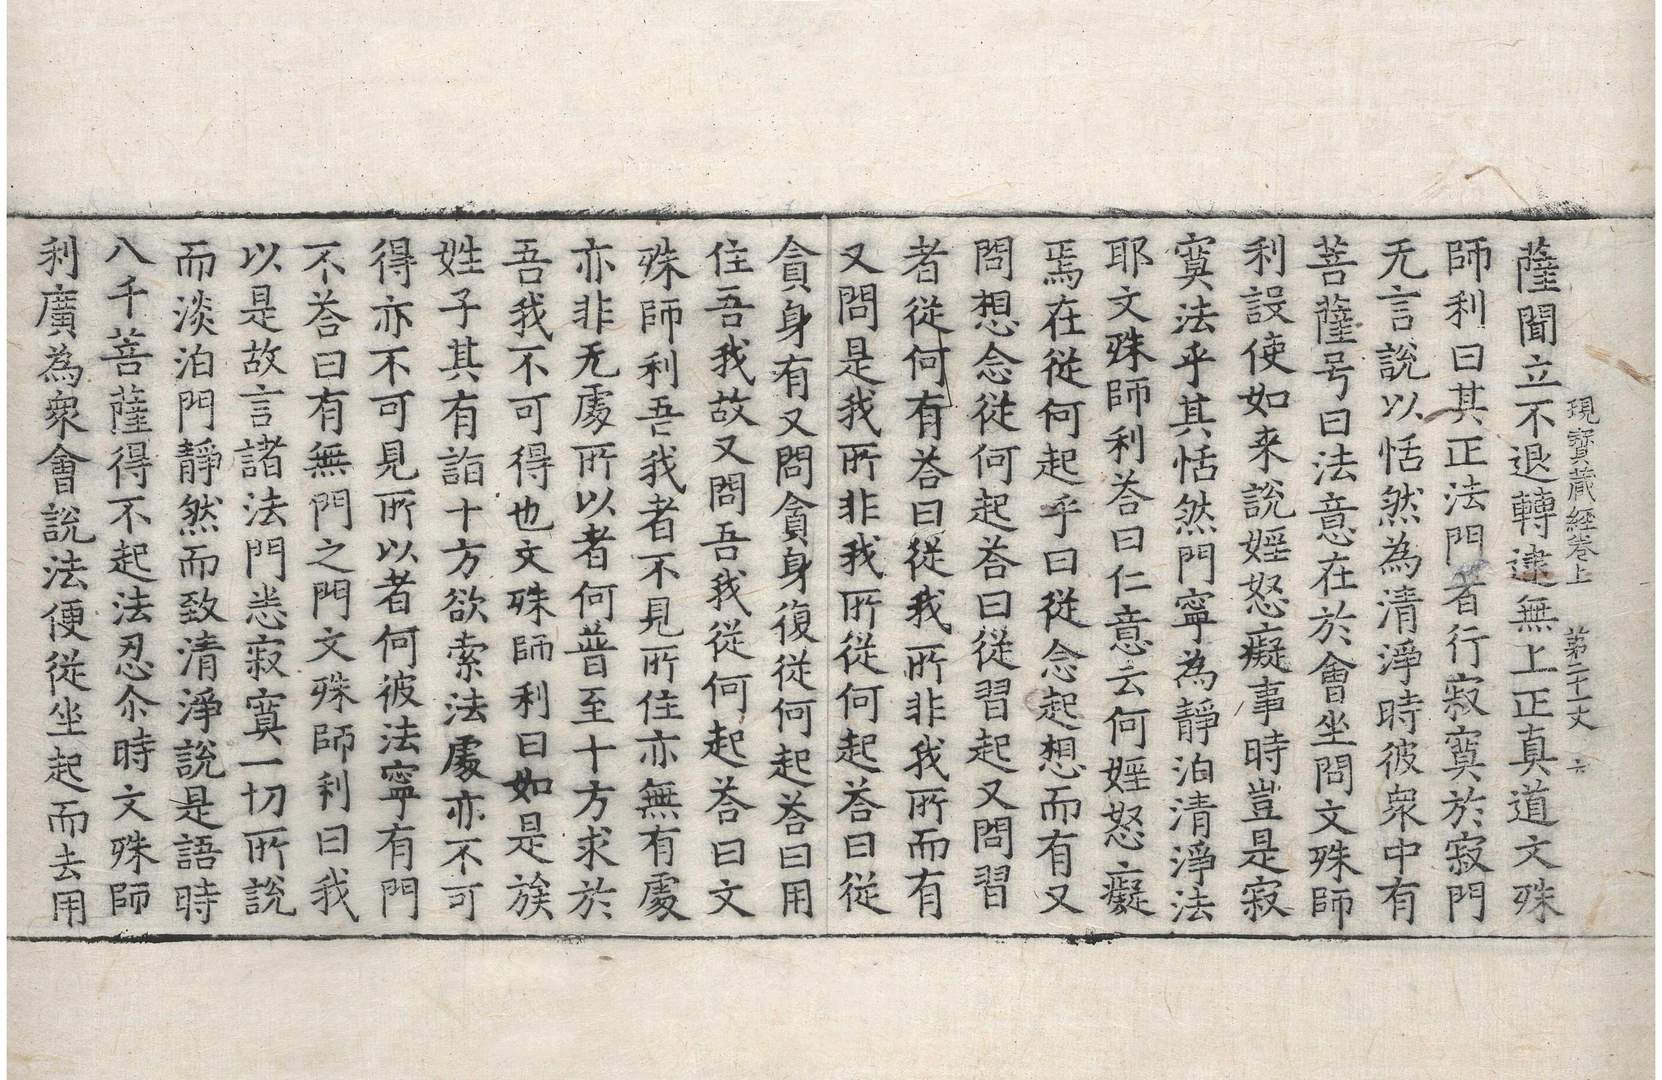 現寶藏經卷上　第二十丈　六
薩聞立不退轉逮無上正真道文殊
師利曰其正法門者行寂寞於寂門
无言說以恬然為清淨時彼衆中有
菩薩号曰法意在於會坐問文殊師
利設使如来說婬怒癡事時豈是寂
寞法乎其恬然門寧為靜泊清淨法
耶文殊師利荅曰仁意云何婬怒癡
焉在從何起乎曰從念起想而有又
問想念從何起荅曰從習起又問習
者從何有荅曰從我所非我所而有
又問是我所非我所從何起荅曰從
貪身有又問貪身復從何起荅曰用
住吾我故又問吾我從何起荅曰文
殊師利吾我者不見所住亦無有處
亦非无處所以者何普至十方求於
吾我不可得也文殊師利曰如是族
姓子其有詣十方欲索法處亦不可
得亦不可見所以者何彼法寧有門
不荅曰有無門之門文殊師利曰我
以是故言諸法門悉寂寞一切所說
而淡泊門靜然而致清淨說是語時
八千菩薩得不起法忍尒時文殊師
利廣為衆會說法便從坐起而去用